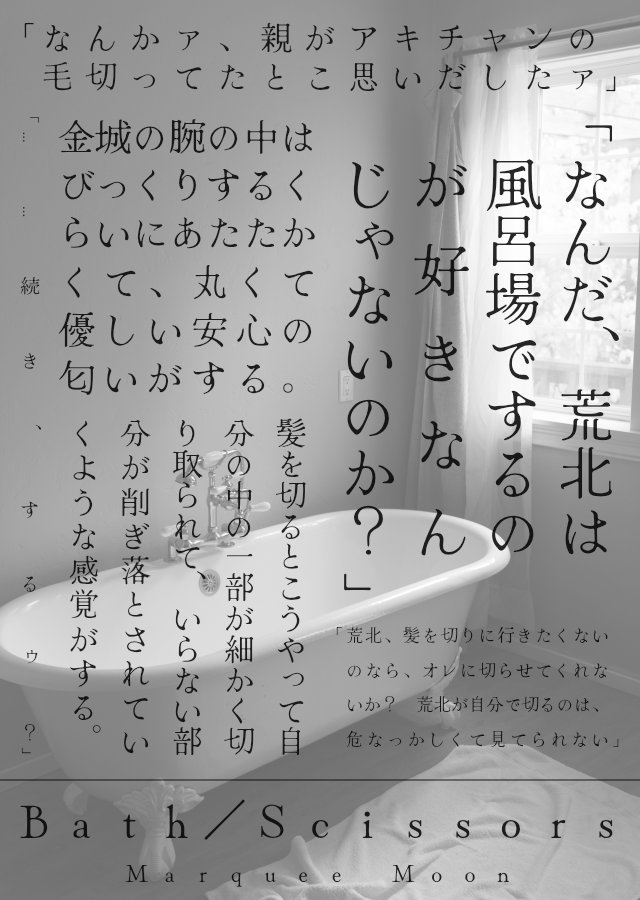 「なんかァ、親がアキチャンの
毛切ってたとこ思いだしたァ」
「なんだ、荒北は
風呂場でするの
が好きなん
じゃないのか？」
金城の腕の中は
びっくりするく
らいにあたたか
くて、丸くて
優しい安心の
匂いがする。
髪を切るとこうやって自
分の中の一部が細かく切
り取られて、いらない部
分が削ぎ落とされてい
くような感覚がする。
「……続き、するゥ？」
「荒北、髪を切りに行きたくない
のなら、オレに切らせてくれな
いか？　荒北が自分で切るのは、
危なっかしくて見てられない」
Bath／Scissors
Marquee Moon